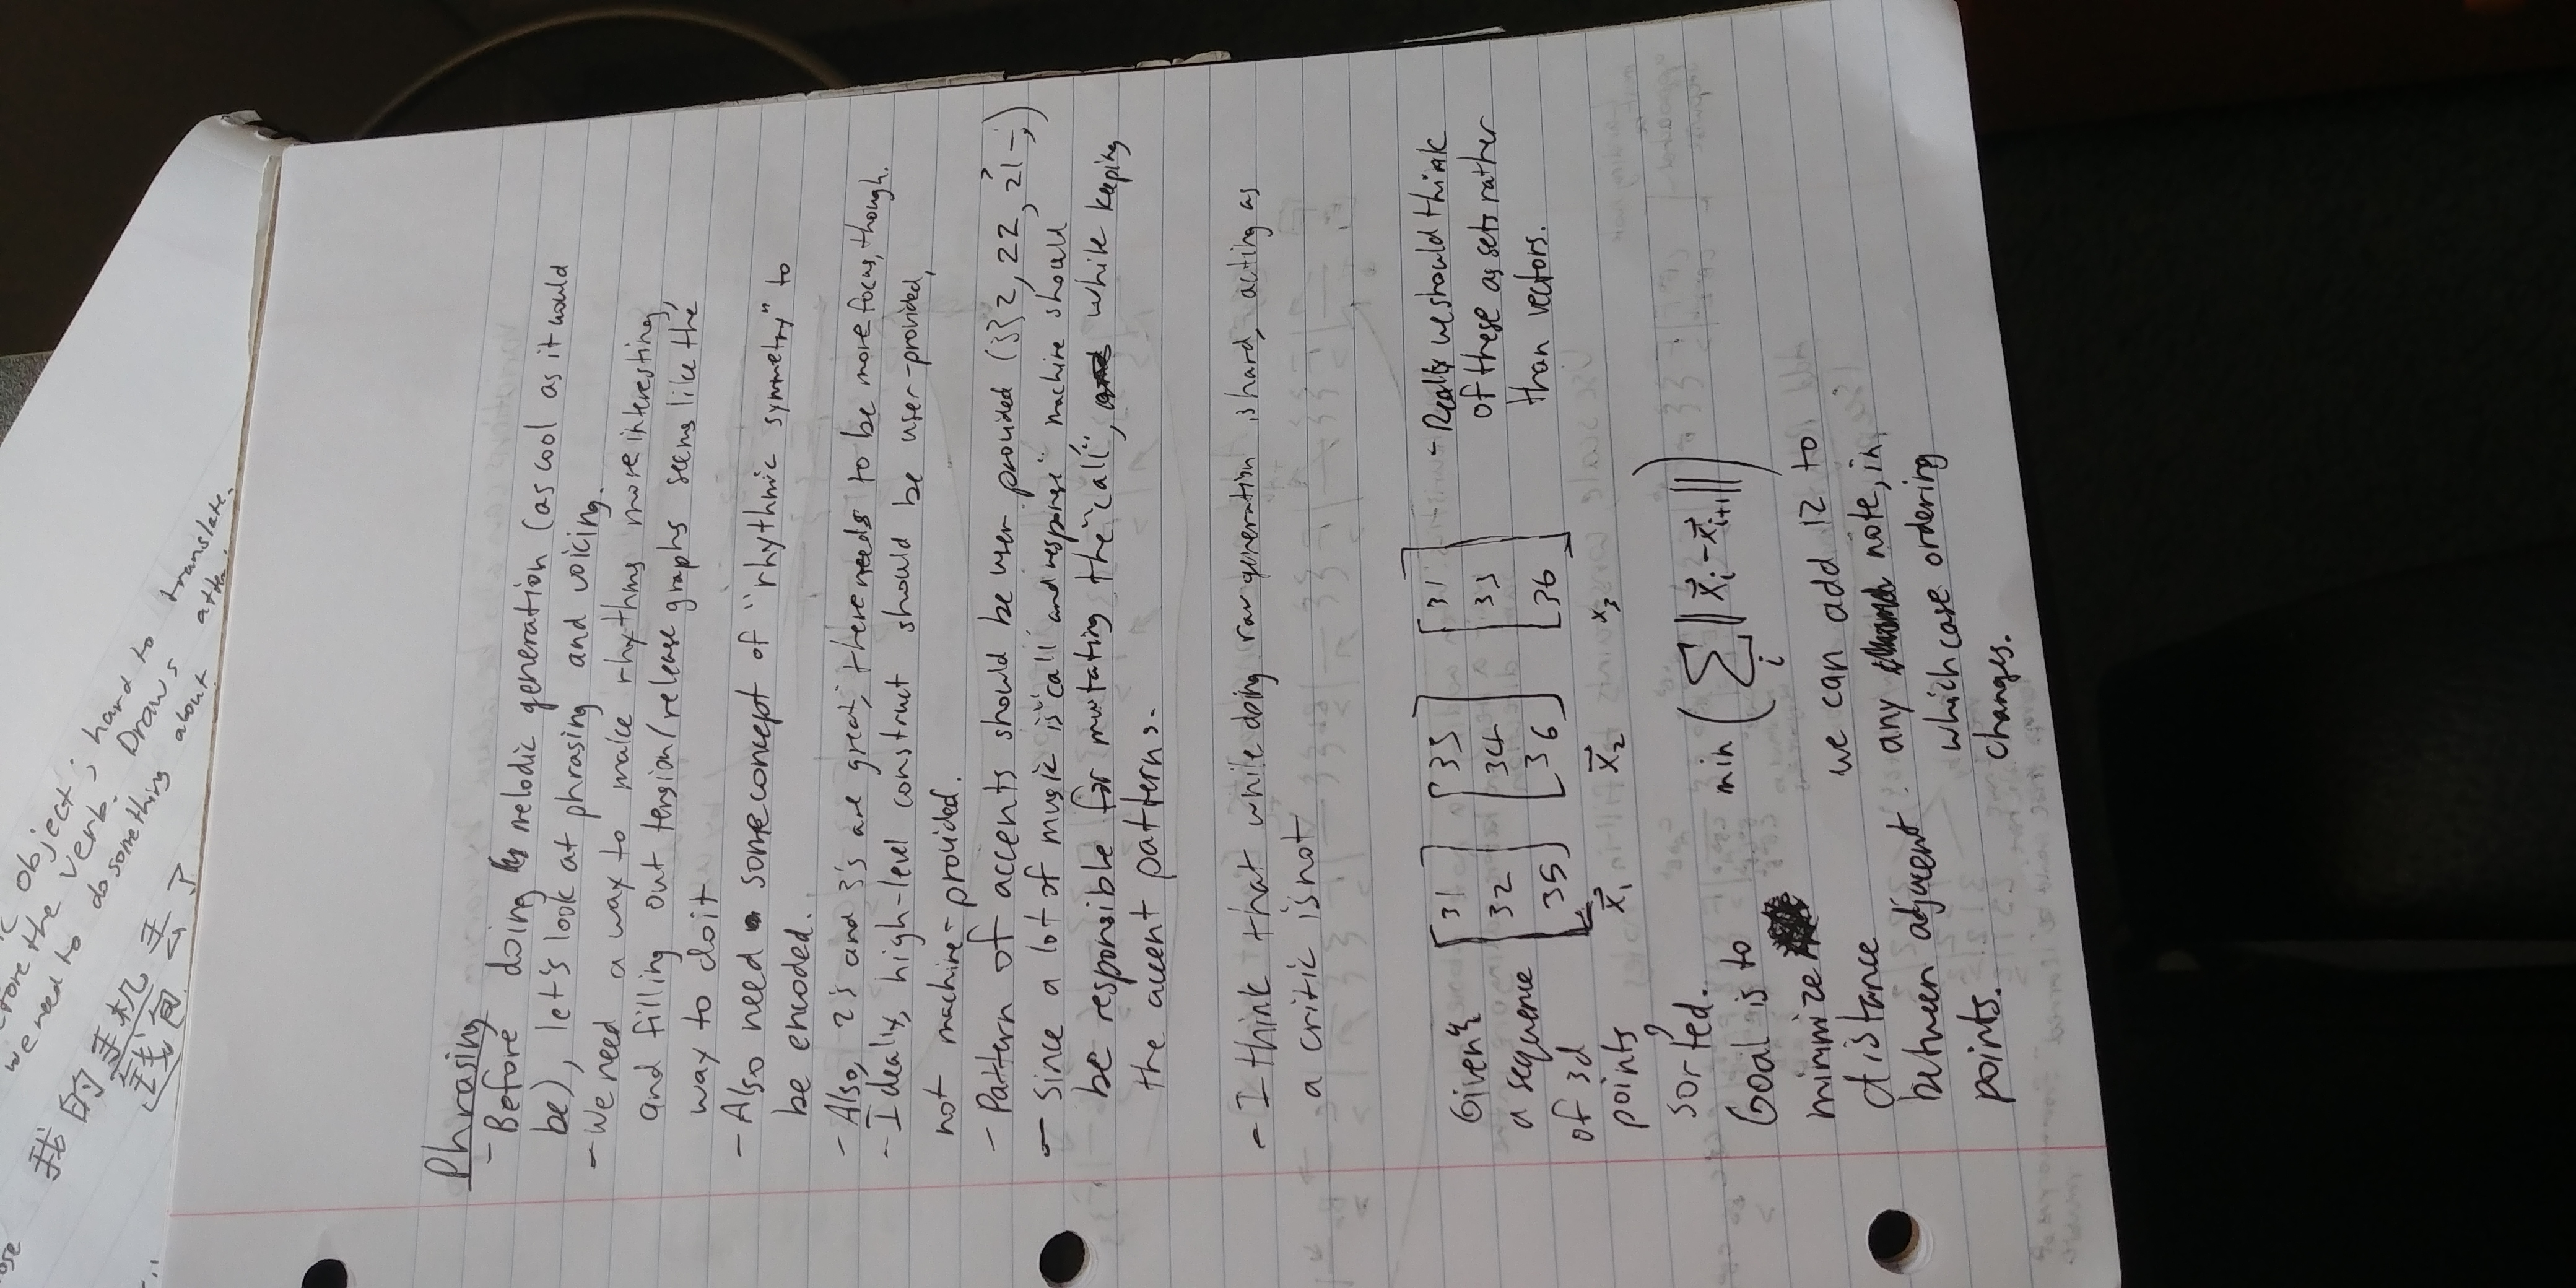 ose
object; hard to translate.
before the verb. Draws atten
we need to do something about
我的手机丢了
钱包
Phrasing
- Before doing melodic generation (as cool as it would
be), let's look at phrasing and voicing.
- We need a way to make rhythms more interesting,
and filling out tension/release graphs seems like the
way to do it
- Also need some concept of "rhythmic symmetry" to
be encoded.
- Also, 2's and 3's are great, there needs to be more focus, though.
- Ideally, high-level construct should be user-provided,
not machine-provided.
- Pattern of accents should be user provided (332, 22, 21-;)
- Since a lot of music is "call and response", machine should
be responsible for mutating the "call", while keeping
the accent patterns.
- I think that while doing raw generation is hard, acting as
a critic is not
Given
a sequence
of 3d
points,
sorted.
Goal is to
minimize
distance
between adjacent
points.
[31 32 35] [35 34 36] [31 33 36]
x⃗₁ x⃗₂ x₃
- Really we should think
of these as sets rather
than vectors.
min(∑ᵢ ||x⃗ᵢ - x⃗ᵢ₊₁||)
we can add 12 to
any note, in
which case ordering
changes.